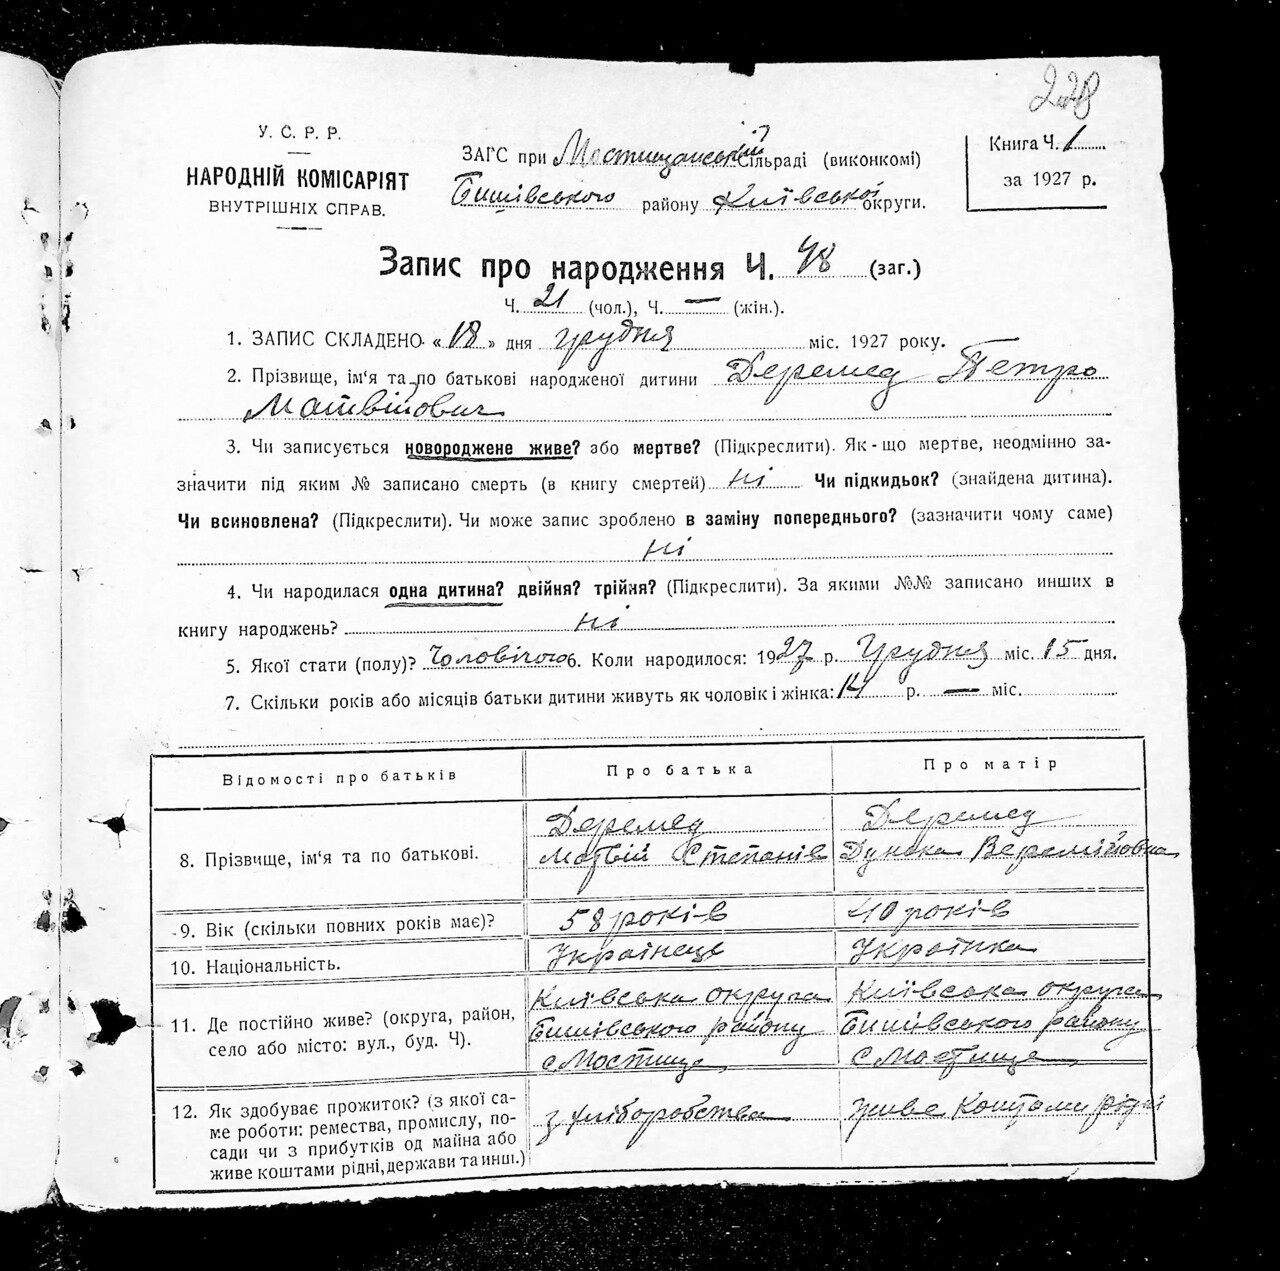 228
У. С. Р. Р.
НАРОДНІЙ КОМІСАРІЯТ
ВНУТРІШНІХ СПРАВ.
ЗАГС при Мостищанській Сільраді (виконкомі)
Бишівського району Київської округи.
Книга Ч. 1
за 1927 р.
Запис про народження Ч. 48 (заг.)
Ч. 21 (чол.), Ч. — (жін.).
1. ЗАПИС СКЛАДЕНО «18» дня грудня міс. 1927 року.
2. Прізвище, ім'я та по батькові народженої дитини Деремед Петро
Матвійович
3. Чи записується новороджене живе? або мертве? (Підкреслити). Як-що мертве, неодмінно за-
значити під яким № записано смерть (в книгу смертей) ні Чи підкидьок? (знайдена дитина).
Чи всиновлена? (Підкреслити). Чи може запис зроблено в заміну попереднього? (зазначити чому саме)
ні
4. Чи народилася одна дитина? двійня? трійня? (Підкреслити). За якими №№ записано инших в
книгу народжень? ні
5. Якої стати (полу)? Чоловічого 6. Коли народилося: 1927 р. Грудня міс. 15 дня.
7. Скільки років або місяців батьки дитини живуть як чоловік і жінка: р. — міс.
Відомості про батьків Про батька Про матір
8. Прізвище, ім'я та по батькові.
Деремед
Матвій Степанів
Деремед
Дунька Веремійовна
9. Вік (скільки повних років має)? 58 років 40 років
10. Національність. Українець Українка
11. Де постійно живе? (округа, район,
село або місто: вул., буд. Ч).
Київська округа
Бишівського району
с Мостище
Київська округа
Бишівського району
с Мостище
12. Як здобуває прожиток? (з якої са-
ме роботи: ремества, промислу, по-
сади чи з прибутків од майна або
живе коштами рідні, держави та инш.)
з хліборобства
живе коштами рідні